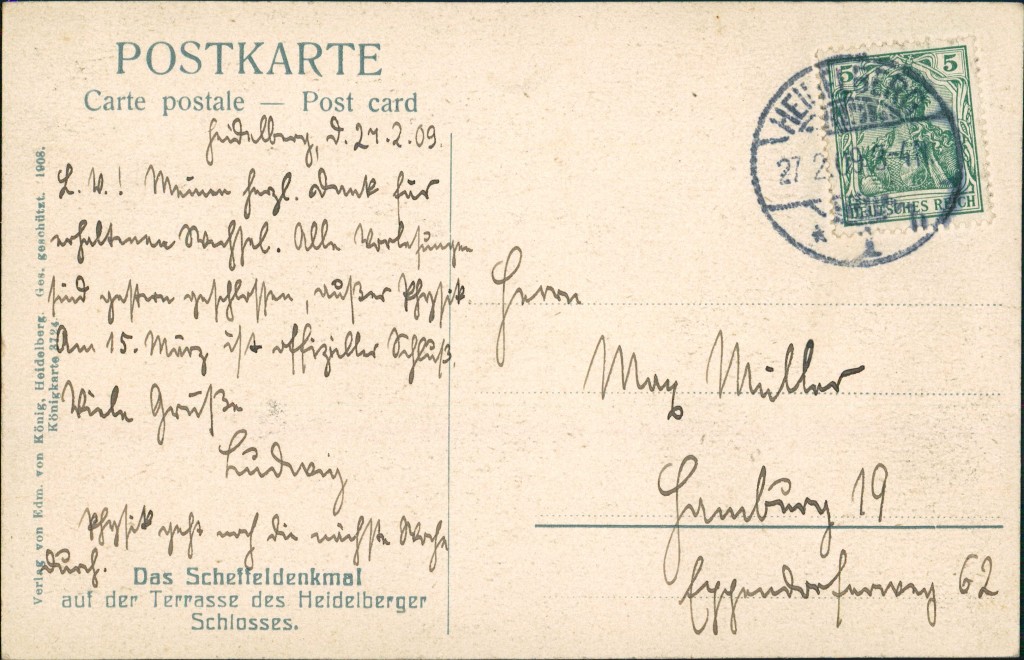 POSTKARTE
Carte postale — Post card
Heidelberg, d. 27.2.09.
L. V.! Meinen herzl. Dank für
erhaltenen Wechsel. Alle Vorlesungen
sind gestern geschlossen, außer Physik.
Am 15. März ist offizieller Schluß.
Viele Grüße
Ludwig
Physik geht noch die nächste Woche
durch.
Das Scheffeldenkmal
auf der Terrasse des Heidelberger
Schlosses.
Verlag von Edm. von König, Heidelberg. Ges. geschützt. 1908.
Königkarte 3724
5 5
DEUTSCHES REICH
HEIDELBERG
27.2.09. 3-4 N
* 1 n
Herrn
Max Müller
Hamburg 19
Eppendorferweg 62